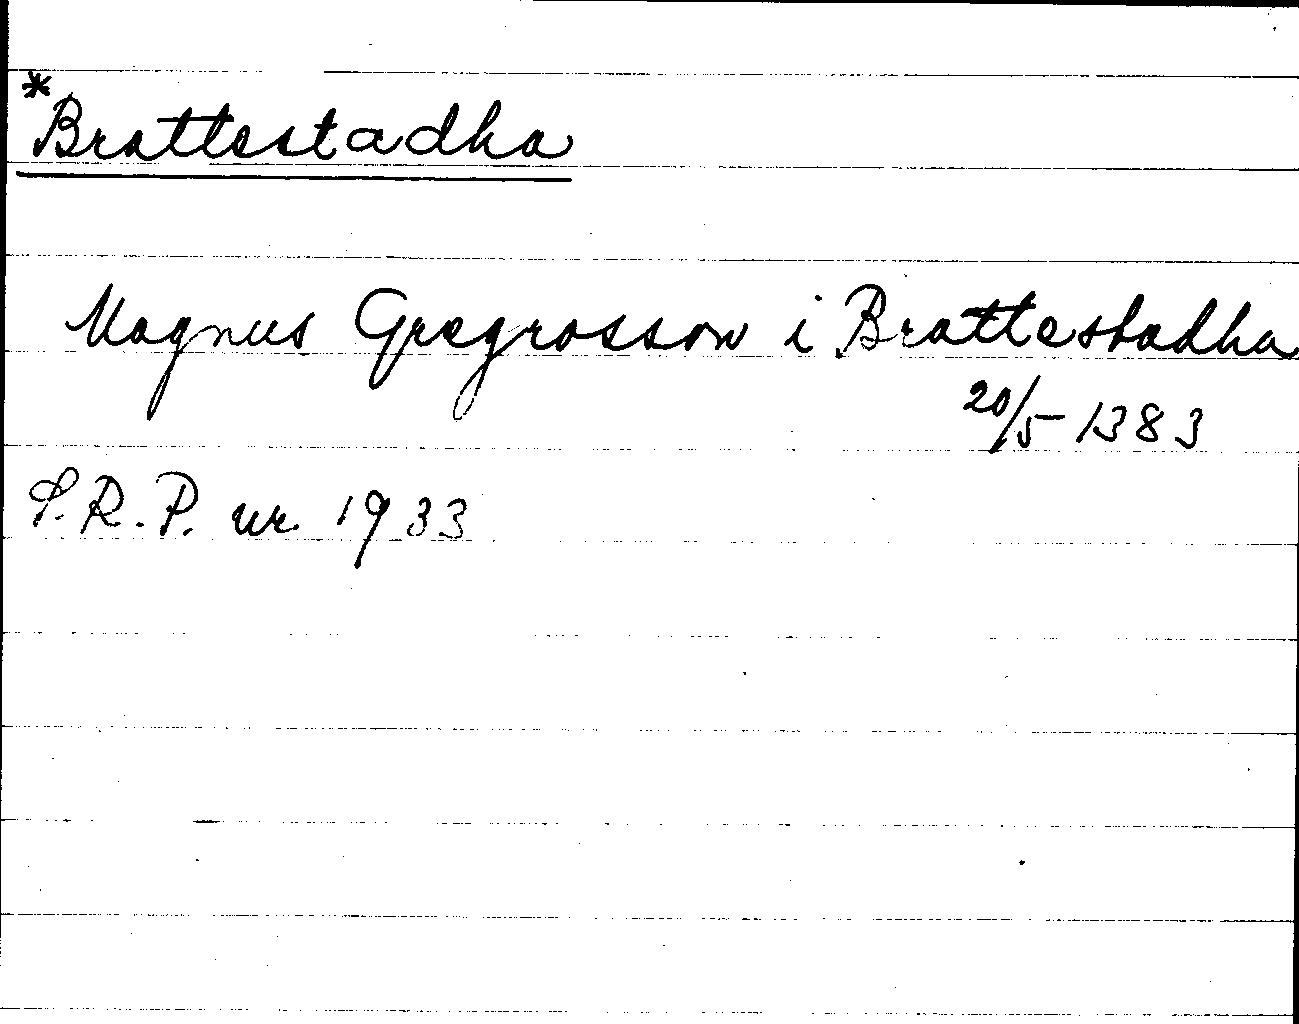 *Brattestadha
Magnus Gregrosson i Brattestadha
20/5 1383
S.R.P. nr. 1933